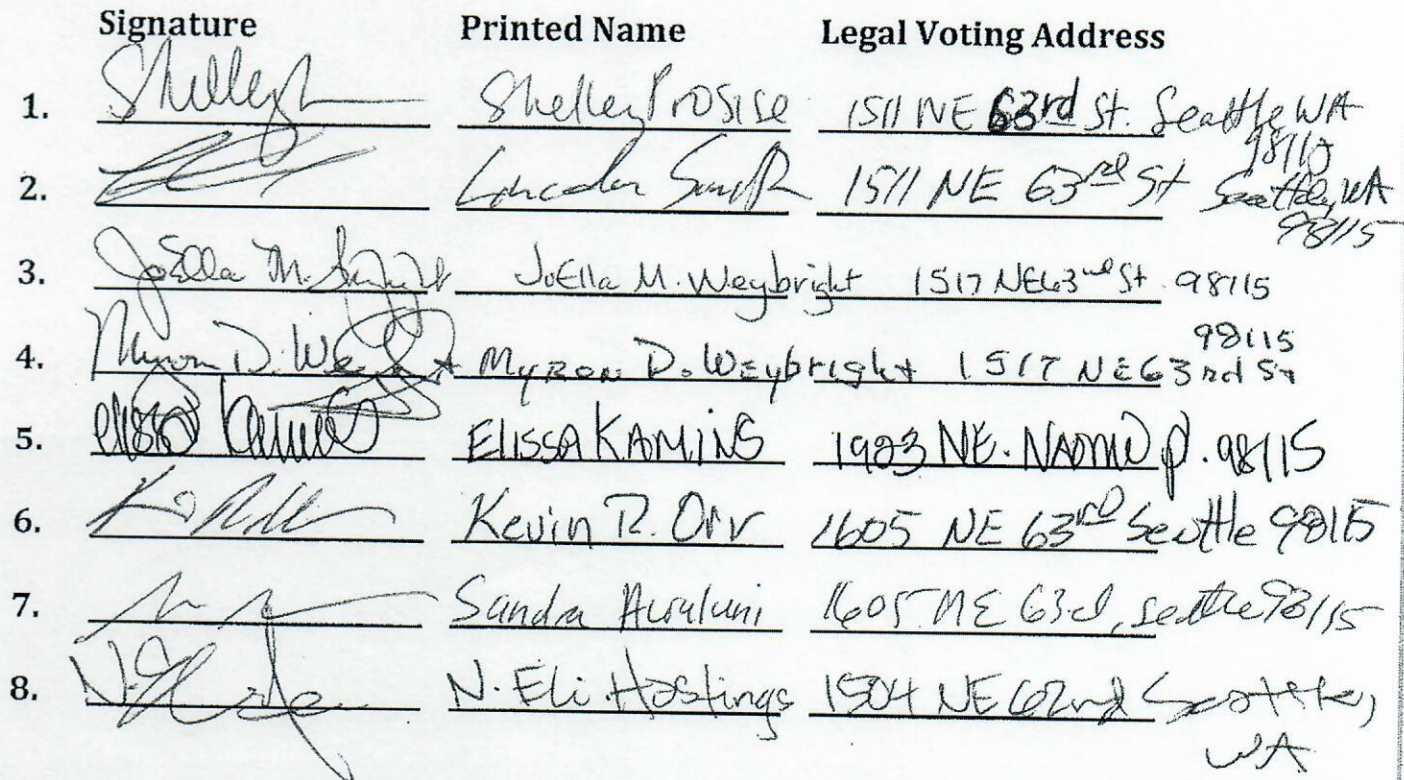 Signature Printed Name Legal Voting Address
1. Shelley Prosise 1511 NE 63rd St. Seattle WA 98115
2. Lincoln 1511 NE 63rd St Seattle, WA 98115
3. JoElla M. JoElla M. Weybright 1517 NE 63rd St. 98115
4. Myron D. Myron D. Weybright 1517 NE 63rd St 98115
5. Elissa Kamins 1923 NE. 98115
6. Kevin R. Orr 1605 NE 63rd Seattle 98115
7. Sandra 1605 NE 63rd, Seattle 98115
8. N. Eli Hastings 1504 NE 62nd Seattle, WA